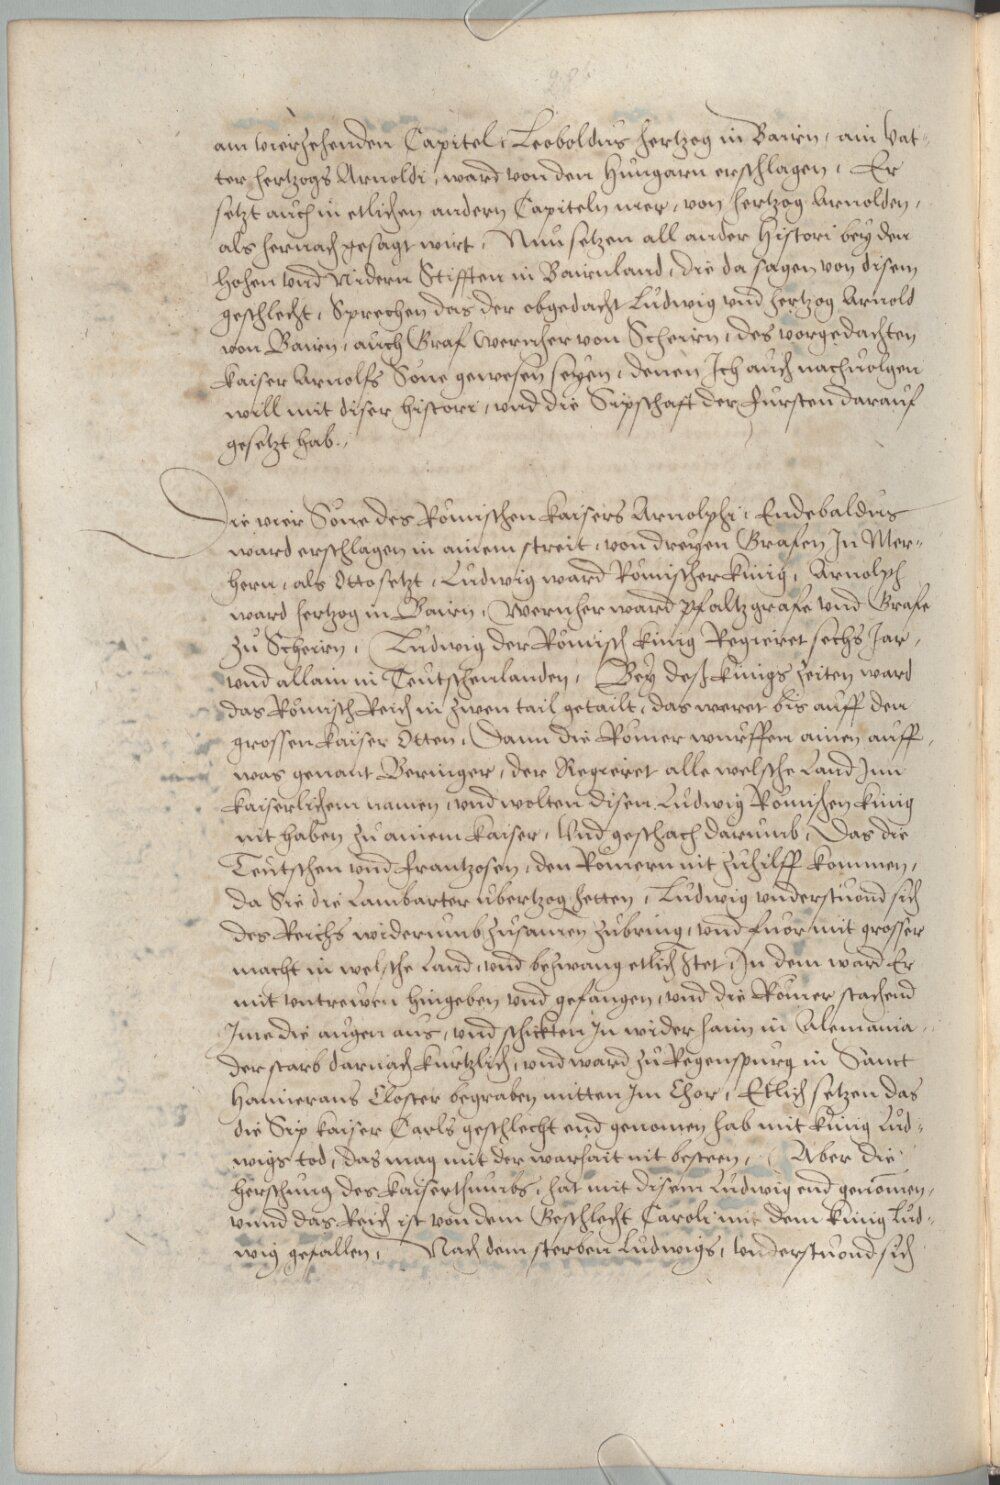 am vierzehenden Capitel, Leoboldus hertzog in Bairn, ain Vat-
ter hertzogs Arnoldi, ward von den Hungarn erschlagen, Er
setzt auch in etlichen andern Capiteln mer, von hertzog Arnolden,
als hernach gesagt wirt, Nun setzen all ander Histori bey den
Hohen vnd Nidern Stifften in Bairnland, die da sagen von disem
geschlecht, Sprechen das der obgedacht Ludwig vnd hertzog Arnold
von Bairn, auch Graf Wernher von Scheirn, des vorgedachten
Kaiser Arnolfs Söne gewesen seyen, denen Ich auch nachuolgen
will mit diser Histori, vnd die Sipschafft der Fürsten darauf
gesetzt hab.
Die vier Söne des Römischen Kaisers Arnolphi, Endebaldus
ward erschlagen in ainem streit, von dreyen Grafen In Mer-
hern, als Otto setzt, Ludwig ward Römischer Künig, Arnolph
ward hertzog in Bairn, Wernher ward Pfaltzgrafe vnd Grafe
zu Scheirn, Ludwig der Römisch Künig Regieret sechs Jar,
vnd allain in Teutschenlanden, Bey deß Künigs Zeiten ward
das Römisch Reich in zwen tail getailt, das weret bis auff den
grossen Kaiser Otten, Dann die Römer wurffen ainen auff,
was genant Beringer, der Regieret alle welsche Land Jnn
Kaiserlichem namen, vnd wolten disen Ludwig Römischen Künig
nit haben zu ainem Kaiser, Vnd geschach darumb, Das die
Teutschen vnd Frantzosen, den Römern nit zuhilff kommen,
da Sie die Lambarter übertzog hetten, Ludwig vnderstuond sich
des Reichs widerumb zusamen zubring, vnd fuor mit grosser
macht in welsche Land, vnd bezwang etlich Stet, In dem ward Er
mit vntrewen hingeben vnd gefangen, vnd die Römer stachend
Ime die augen aus, vnd schickten In wider haim in Alemania,
der starb darnach kurtzlich, vnd ward zu Regenspurg in Sanct
Haimerans Closter begraben mitten Im Chor, Etlich setzen das
die Sip Kaiser Carls geschlecht end genomen hab mit Künig Lud-
wigs tod, das mag mit der warhait nit besteen, Aber die
herschung des Kaiserthumbs, hat mit disem Ludwig end genomen,
vnnd das Reich ist von dem Geschlecht Caroli mit dem Künig Lud-
wig gefallen, Nach dem sterben Ludwigs, vnderstuond sich